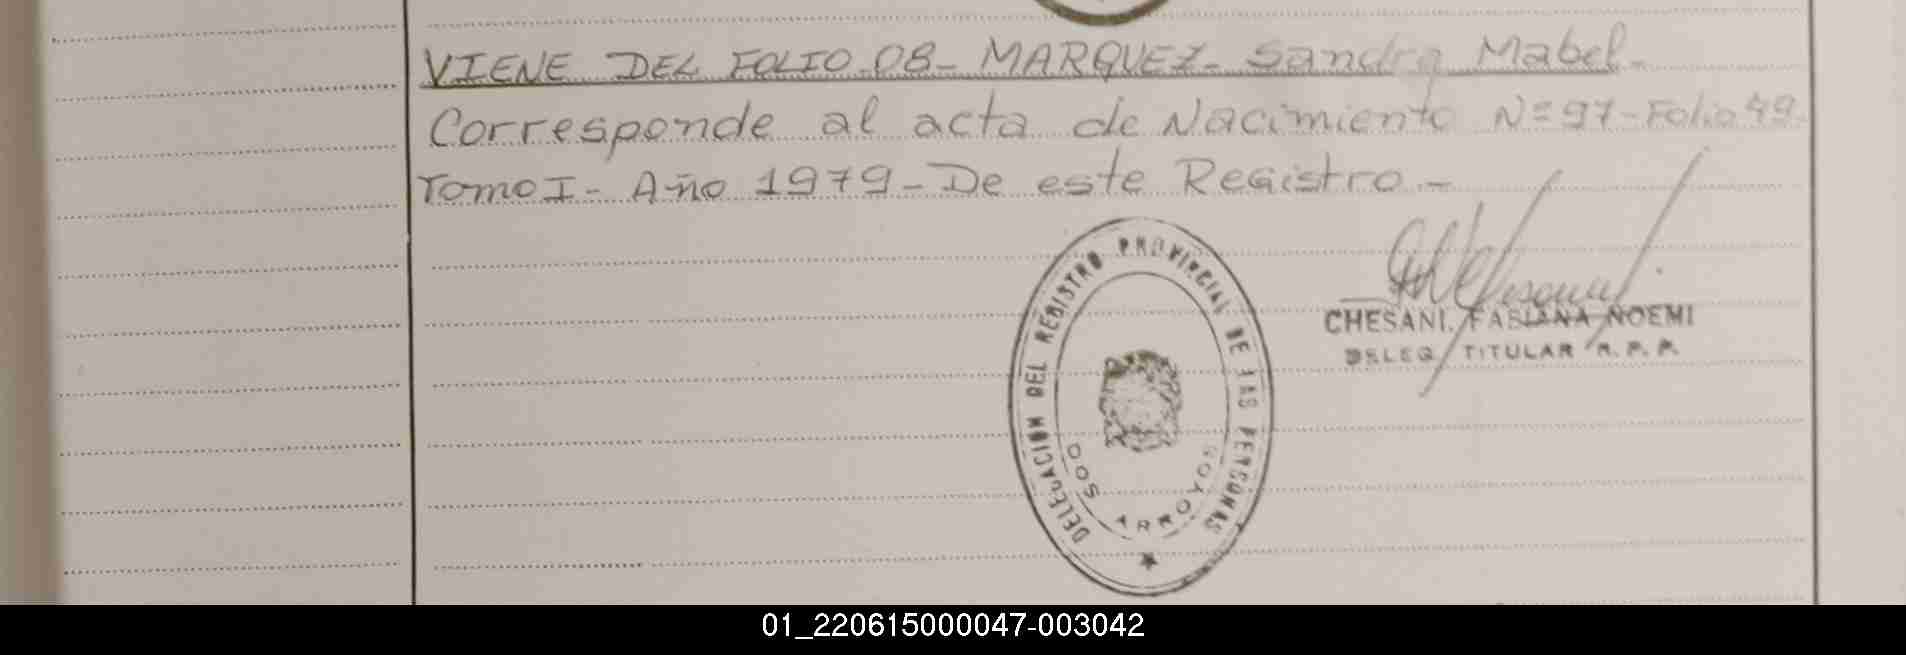 VIENE DEL FOLIO 08- MARQUEZ- Sandra Mabel-
Corresponde al acta de Nacimiento Nº 97-Folio 49-
Tomo I- Año 1979- De este Registro-
DELEGACIÓN DEL REGISTRO PROVINCIAL DE LAS PERSONAS
DOS ARROYOS
CHESANI, FABIANA NOEMI
DELEG. TITULAR R. P. P.
01_220615000047-003042